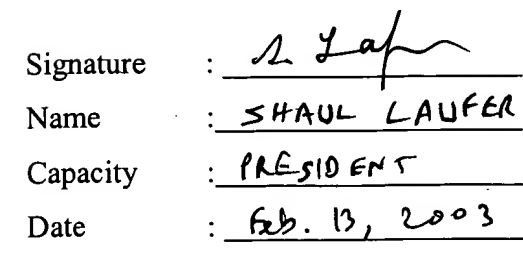 Signature :
Name : SHAUL LAUFER
Capacity : PRESIDENT
Date : Feb. 13, 2003